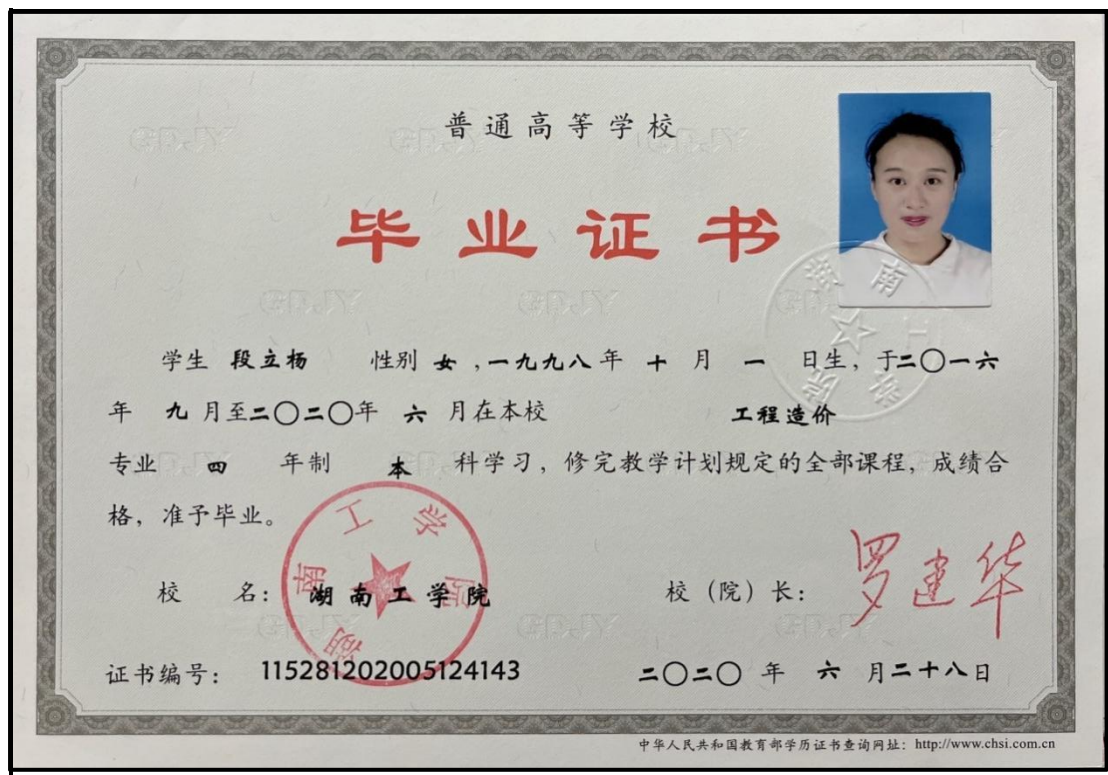 普通高等学校
毕业证书
学生 段立杨 性别 女 ,一九九八年 十 月 一 日生,于二〇一六
年 九 月至二〇二〇年 六 月在本校 工程造价
专业 四 年制 本 科学习,修完教学计划规定的全部课程,成绩合
格,准予毕业。
校 名: 湖南工学院 校(院)长: 罗建华
证书编号: 115281202005124143 二〇二〇 年 六 月二十八日
中华人民共和国教育部学历证书查询网址: http://www.chsi.com.cn
湖南工学院
湖南工学院